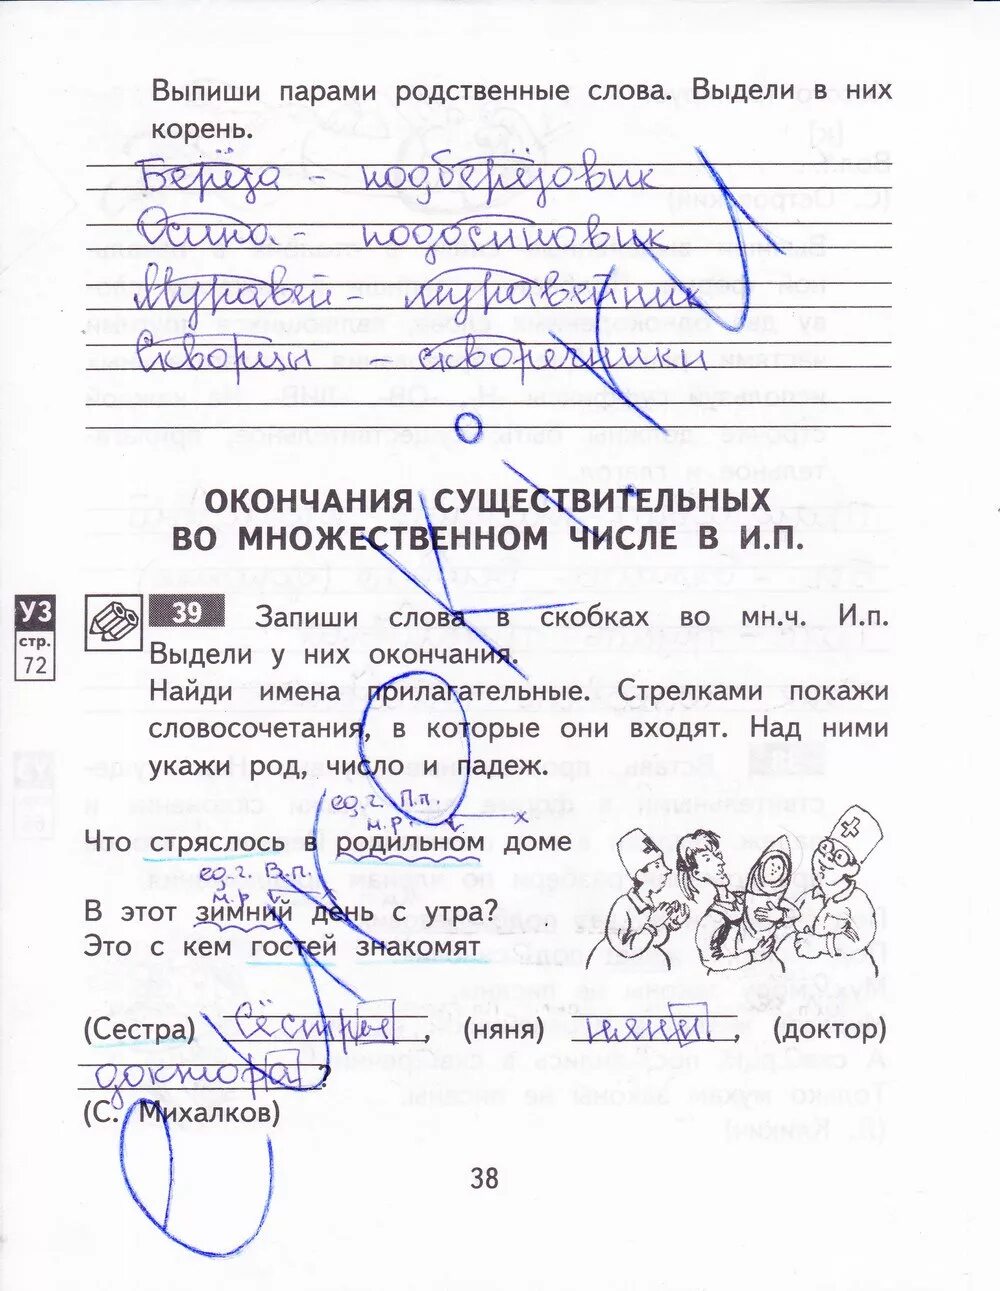 Выпиши парами родственные слова. Выдели в них
корень.
Берёза – подберёзовик
Осина – подосиновик
Муравей – муравейник
Скворцы скворечники
ОКОНЧАНИЯ СУЩЕСТВИТЕЛЬНЫХ
ВО МНОЖЕСТВЕННОМ ЧИСЛЕ В И.П.
УЗ
стр.
72
39 Запиши слова в скобках во мн.ч. И.п.
Выдели у них окончания.
Найди имена прилагательные. Стрелками покажи
словосочетания, в которые они входят. Над ними
укажи род, число и падеж.
ед.ч. П.п.
м.р. х
Что стряслось в родильном доме
ед.ч. В.п.
м.р
В этот зимний день с утра?
Это с кем гостей знакомят
(Сестра) сёстры, (няня) няни, (доктор)
доктора?
(С. Михалков)
38